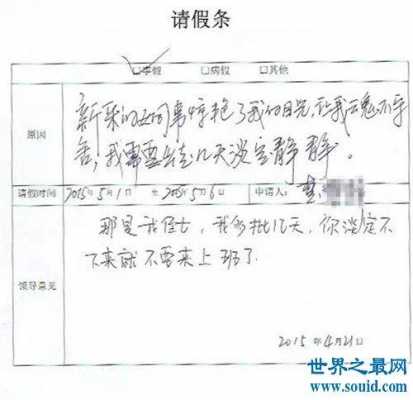 请假条
☑事假 □病假 □其他
原因
新来的女同事惊艳了我的目光,让我三魂不守
舍,我需要去几天淡定静静。
请假时间 2015年5月1日 至 2015年5月6日 申请人:
领导意见
那是我侄女,我多批几天,你淡定不
下来就不要来上班了.
2015年4月21日
世界之最网
www.souid.com